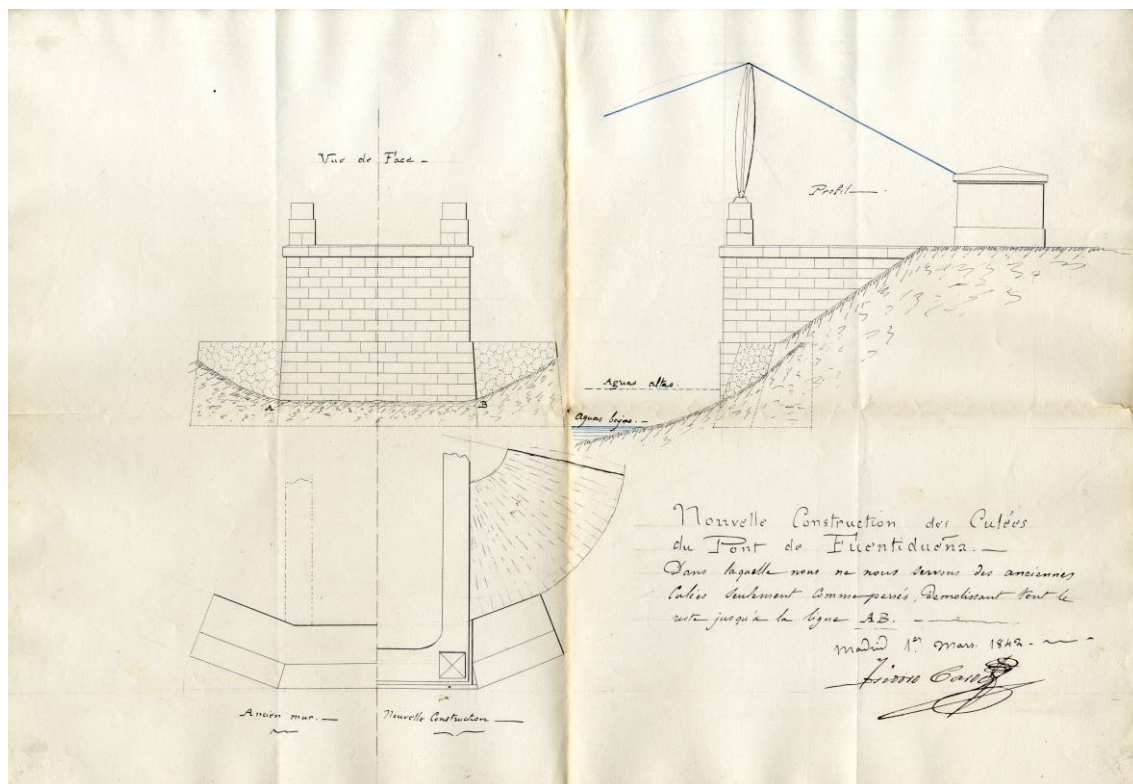 Vue de Face
Profil
Aguas altas.
Aguas bajas.
A
B
Nouvelle Construction des Culées
du Pont de Fuentidueña.
Dans laquelle nous ne nous servons des anciennes
Culées seulement comme perrés, Demolissant tout le
reste jusqu'à la ligne AB.
Madrid 1er Mars. 1842.
Isidoro
Ancien mur.
Nouvelle Construction